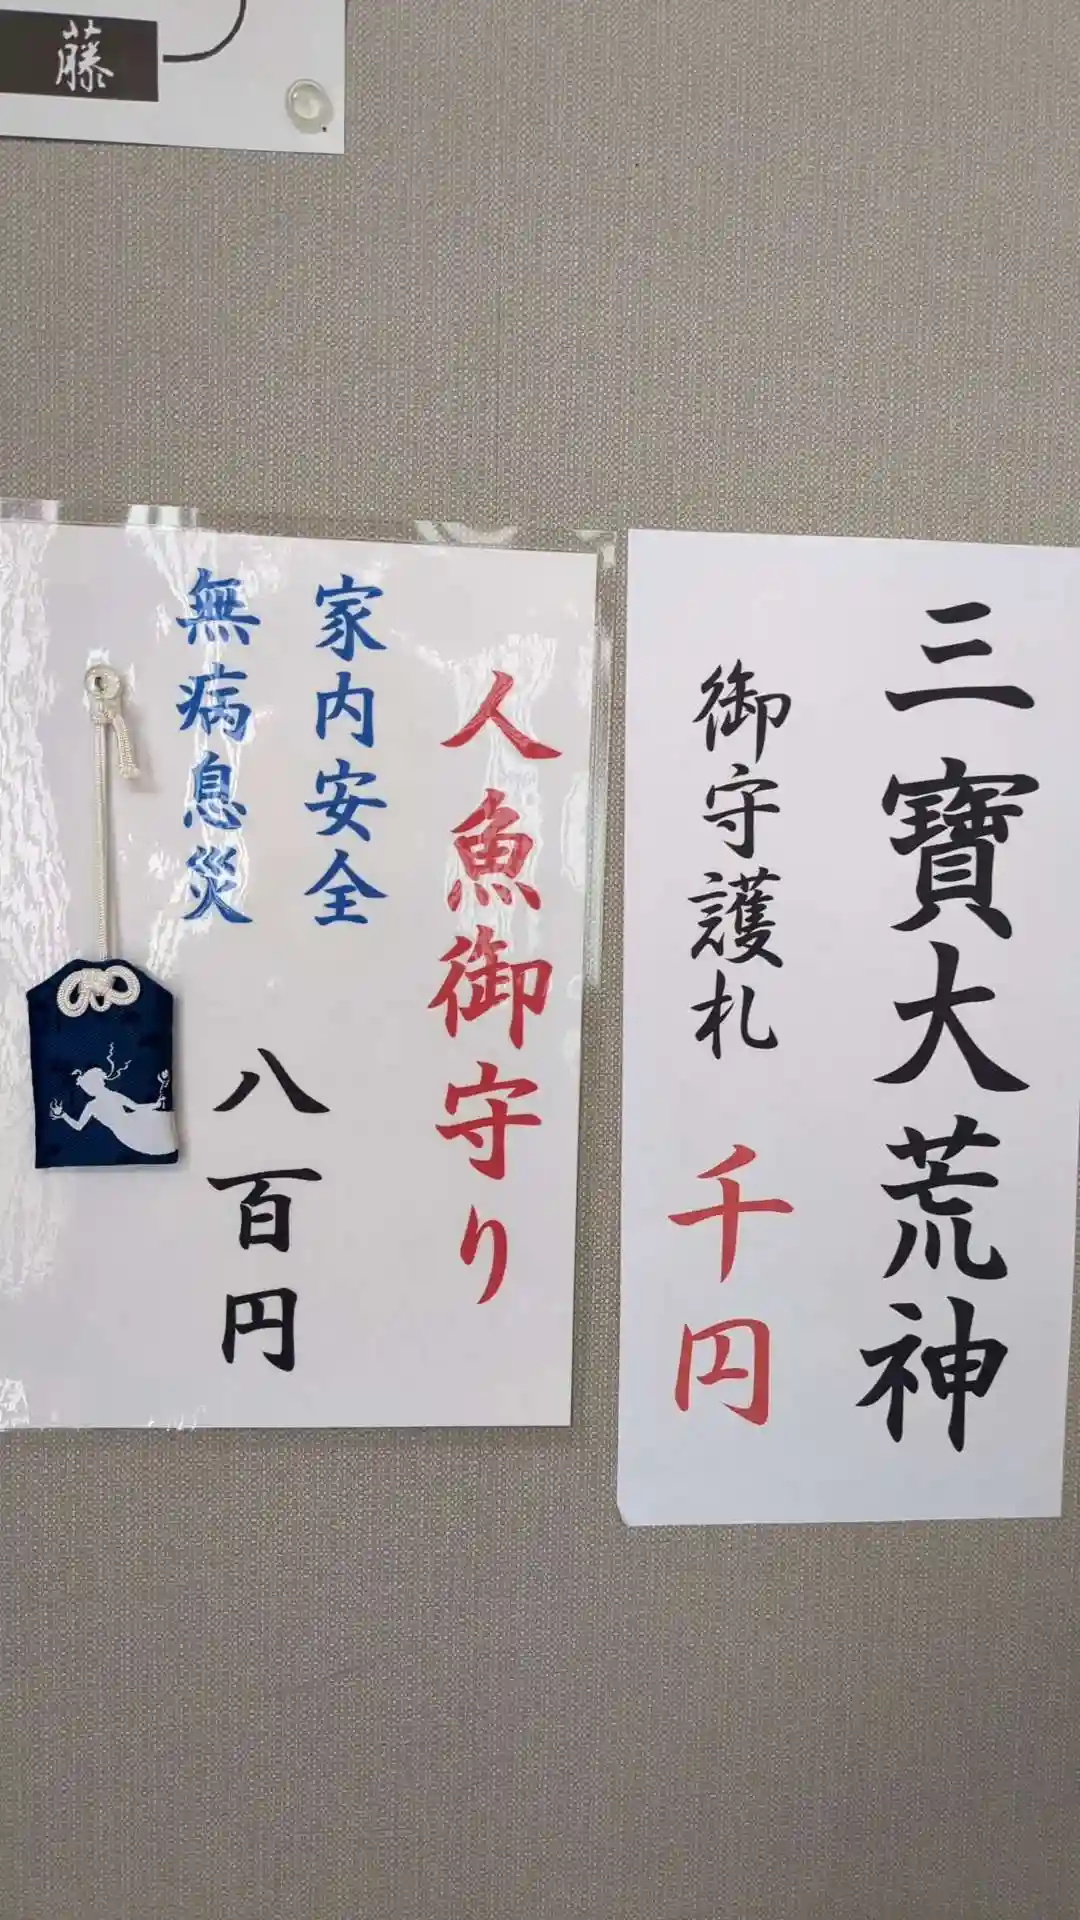 藤
三寳大荒神
御守護札 千円
人魚御守り
家内安全
無病息災
八百円